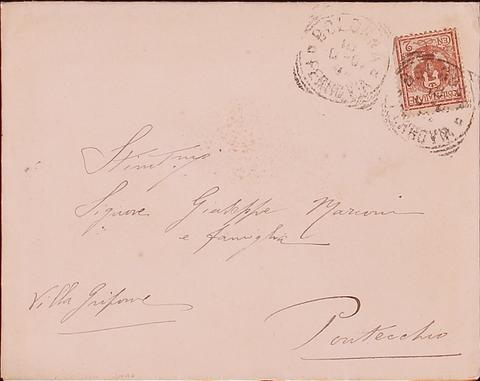 BOLOGNA
FERROVIA
Stim.mi
Signore Giuseppe Marconi
e famiglia
Villa Grifone
Pontecchio